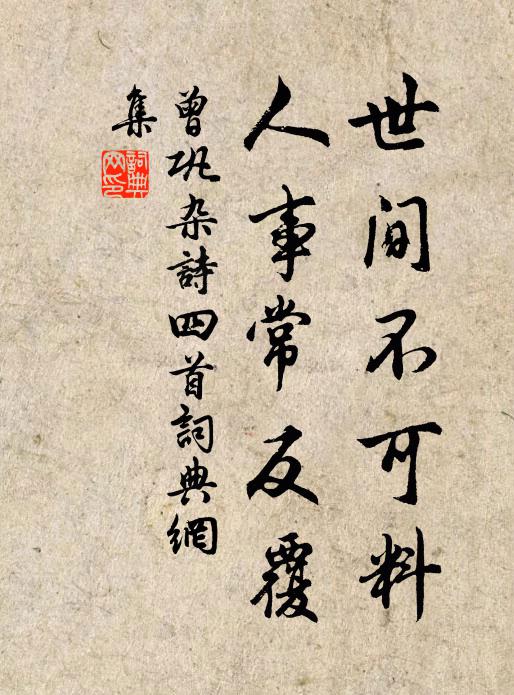 世间不可料
人事常反覆
曾巩杂詩四首詞典網
集
詞典
网印